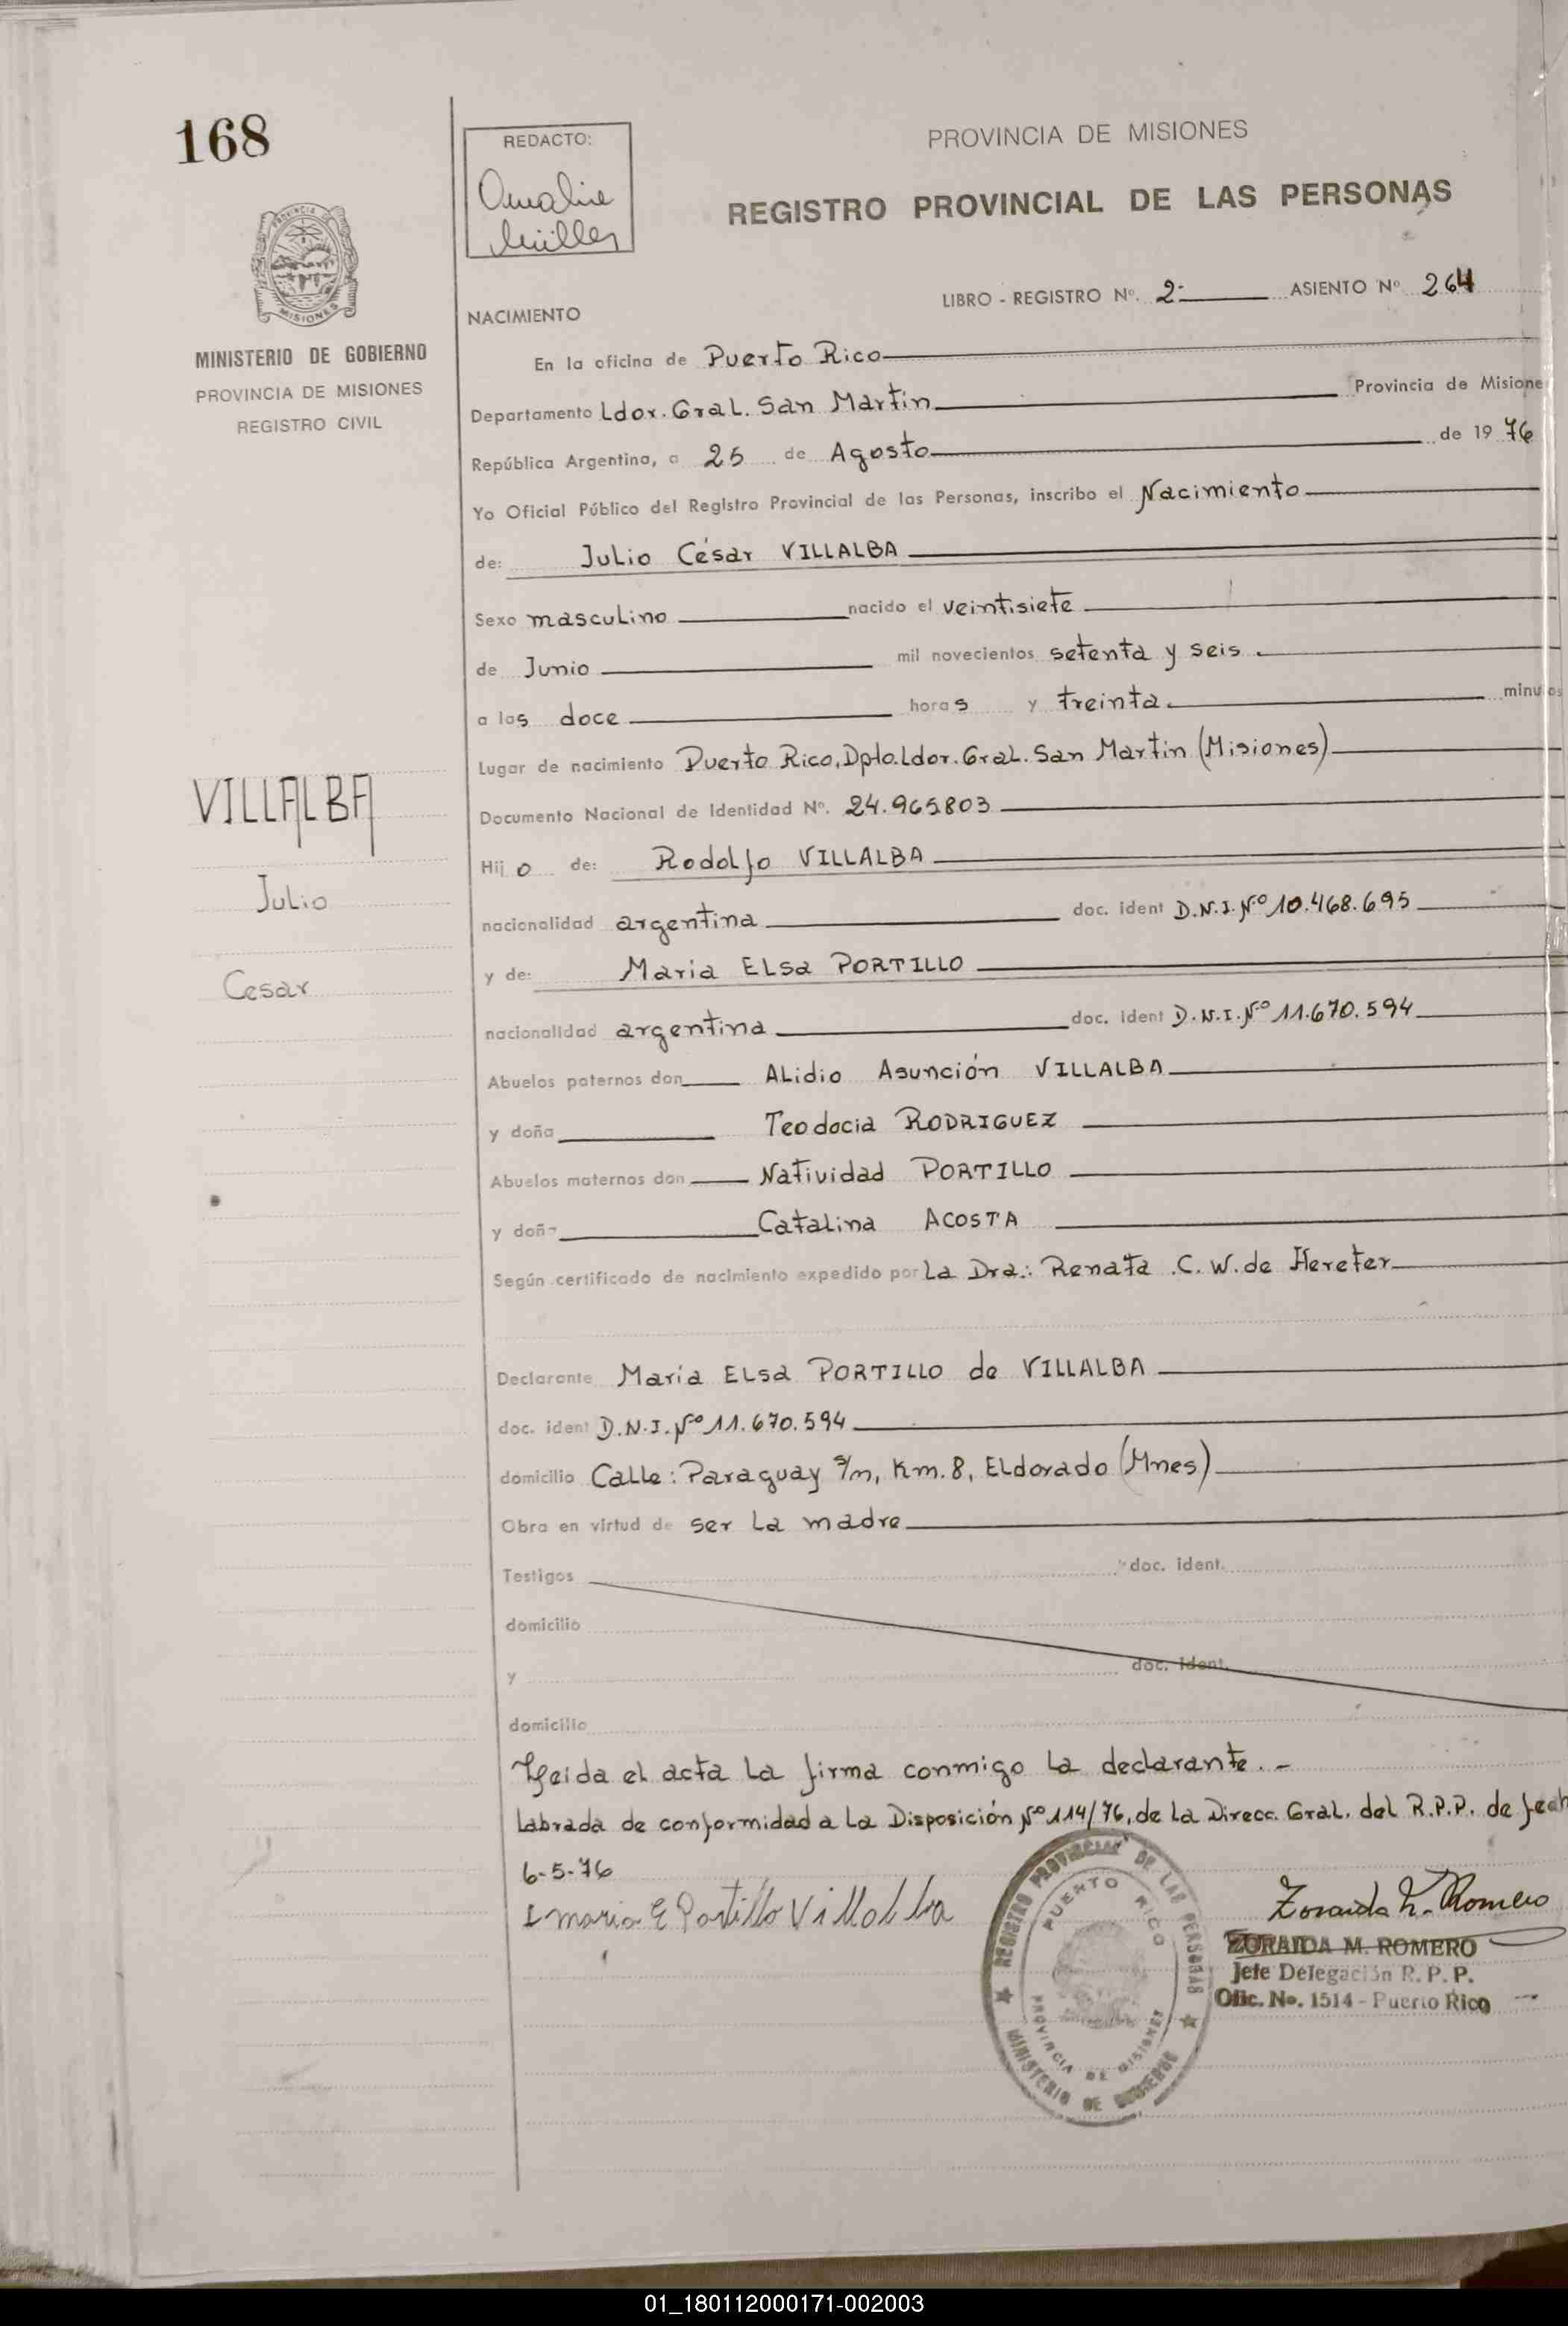 168
REDACTO:
PROVINCIA DE MISIONES
REGISTRO PROVINCIAL DE LAS PERSONAS
LIBRO - REGISTRO Nº. 2- ASIENTO Nº 264
NACIMIENTO
MINISTERIO DE GOBIERNO
PROVINCIA DE MISIONES
REGISTRO CIVIL
En la oficina de Puerto Rico
Departamento Ldor. Gral. San Martin Provincia de Misione
República Argentina, a 25 de Agosto de 1976
Yo Oficial Público del Registro Provincial de las Personas, inscribo el Nacimiento
de: Julio César VILLALBA
Sexo masculino nacido el veintisiete
de Junio mil novecientos setenta y seis.
a las doce horas y treinta. minutos
Lugar de nacimiento Puerto Rico, Dpto. Ldor. Gral. San Martin (Misiones)
VILLALBA
Documento Nacional de Identidad Nº. 24.965803
Hijo de: Rodolfo VILLALBA
Julio
nacionalidad argentina doc. ident D.N.I. Nº 10.468.695
y de: Maria Elsa PORTILLO
Cesar
nacionalidad argentina doc. ident D.N.I. Nº 11.670.594
Abuelos paternos don Alidio Asunción VILLALBA
y doña Teodocia RODRIGUEZ
Abuelos maternos don Natividad PORTILLO
y doña Catalina ACOSTA
Según certificado de nacimiento expedido por La Dra.: Renata C. W. de Hereter
Declarante Maria Elsa PORTILLO de VILLALBA
doc. ident D.N.I. Nº 11.670.594
domicilio Calle: Paraguay s/n, Km. 8, Eldorado (Mnes)
Obra en virtud de ser la madre
Testigos doc. ident.
domicilio
y doc. ident.
domicilio
Leida el acta la firma conmigo la declarante. -
Labrada de conformidad a la Disposición Nº 114/76, de la Direcc. Gral. del R.P.P. de fech
6-5-76
Maria E Portillo Villalba
Zoraida M. Romero
ZORAIDA M. ROMERO
Jefe Delegación R. P. P.
Ofic. No. 1514 - Puerto Rico
REGISTRO PROVINCIAL DE LAS PERSONAS
PUERTO RICO
PROVINCIA DE MISIONES
MINISTERIO DE GOBIERNO
01_180112000171-002003